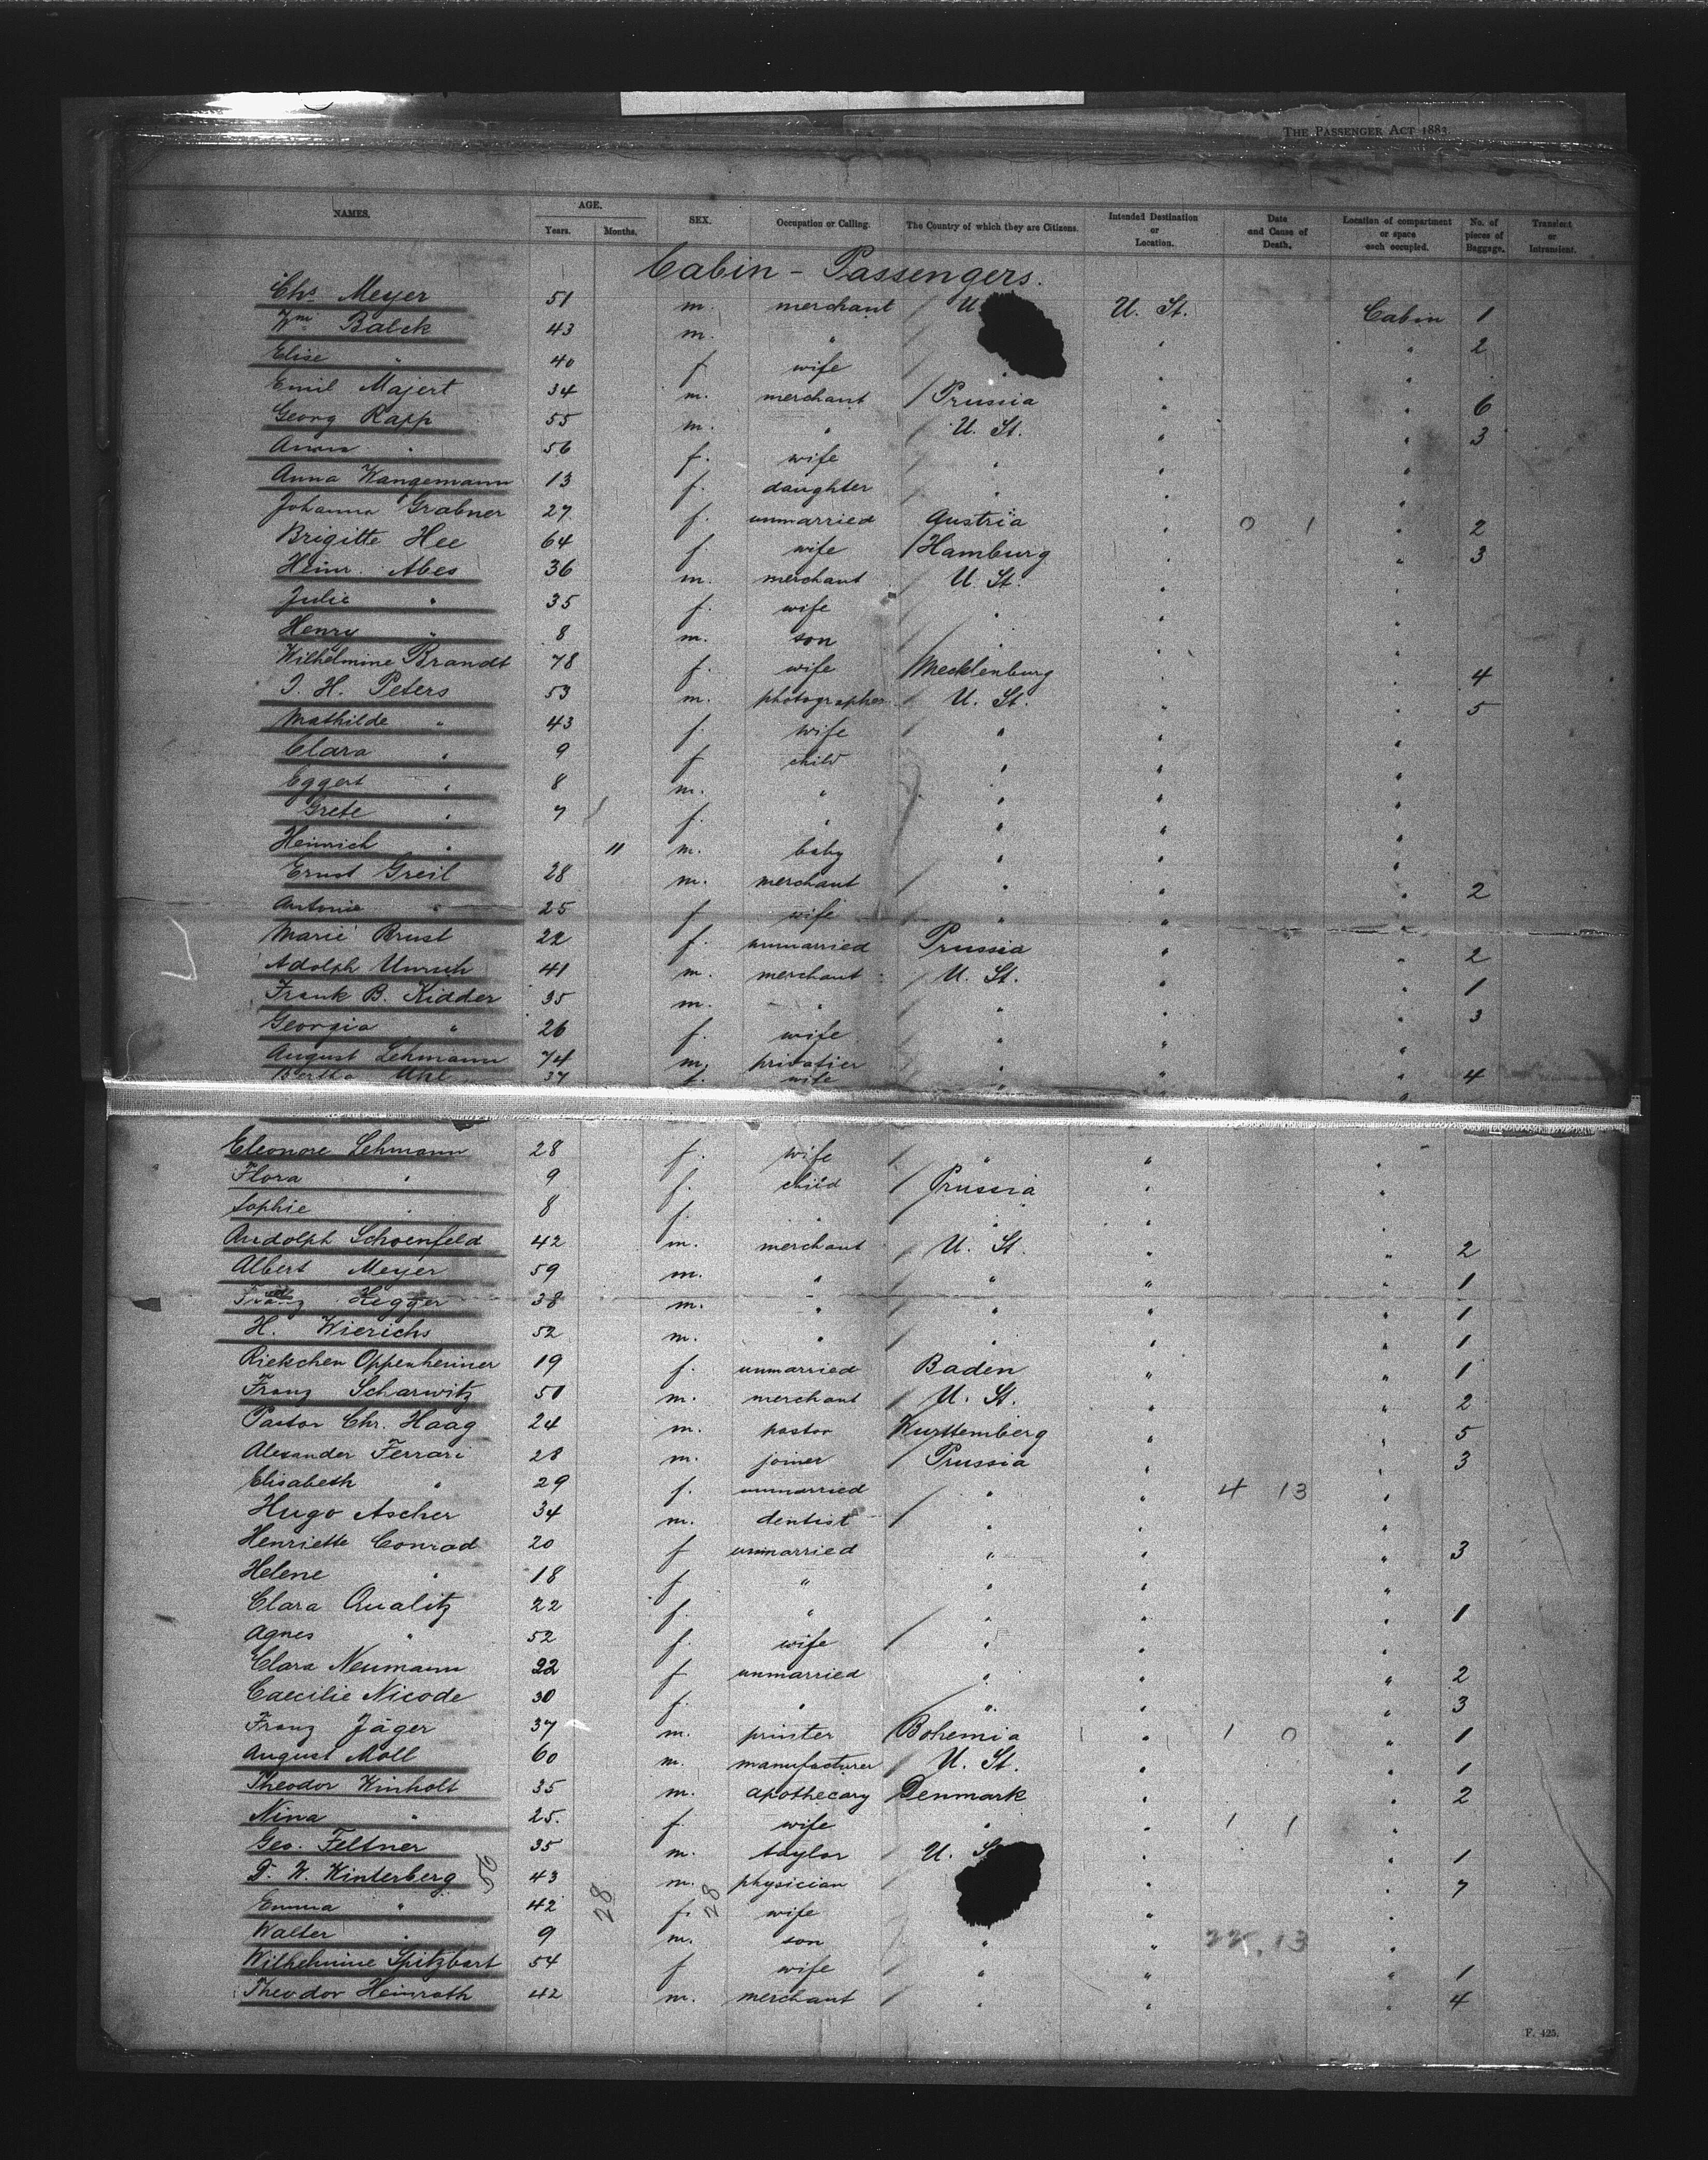 THE PASSENGER ACT 1882
NAMES. AGE. Years. Months. SEX. Occupation or Calling. The Country of which they are Citizens. Intended Destination or Location. Date and Cause of Death. Location of compartment or space each occupied. No. of pieces of Baggage. Transient or Intransient.
Cabin - Passengers.
Chs. Meyer 51 m. merchant / U. U. St. Cabin 1
Wm Balck 43 m. " / " " 2
Elise " 40 f wife / " " "
Emil Majert 34 m. merchant / Prussia " " 6
Georg Rapp 55 m. " U. St. " " 3
Anna " 56 f. wife / " " "
Anna Wangemann 13 f. daughter / " " "
Johanna Grabner 27 f. unmarried Austria " 0 1 " 2
Brigitte Hee 64 f wife / Hamburg " " 3
Heinr. Abes 36 m. merchant U. St. " "
Julie " 35 f. wife / " " "
Henry " 8 m. son / " " "
Wilhelmine Brandt 78 f. wife Mecklenburg " " 4
J. H. Peters 53 m. photographer U. St. " " 5
Mathilde " 43 f. wife / " " "
Clara " 9 f child " " "
Eggert " 8 m. " " " "
Grete " 7 f. " " " "
Heinrich " 11 m. baby " " "
Ernst Greil 28 m. merchant / " " " 2
Antonie " 25 f wife " " "
Marie Brust 22 f. unmarried Prussia " " 2
Adolph Unruh 41 m. merchant / U. St. " " 1
Frank B. Kidder 35 m. " / " " " 3
Georgia " 26 f. wife / " " "
August Lehmann 74 m. privatier / " " " 4
Bertha Uhl 37 f. wife " " "
Eleonore Lehmann 28 f. wife / " " "
Flora " 9 f. child / Prussia " "
Sophie " 8 f. " / " " "
Rudolph Schoenfeld 42 m. merchant / U. St. " " 2
Albert Meyer 59 m. " / " " " 1
Hegger 38 m. " / " " " 1
H. Wierichs 52 m. " / " " " 1
Riekchen Oppenheimer 19 f. unmarried Baden " " 1
Franz Scharwitz 51 m. merchant / U. St. " " 2
Pastor Chr. Haag 24 m. pastor Württemberg " " 5
Alexander Ferrari 28 m. joiner / Prussia " " 3
Elisabeth " 29 f. unmarried " " 4 13 "
Hugo Ascher 34 m. dentist / " " "
Henriette Conrad 20 f unmarried " " " 3
Helene " 18 f " " " "
Clara Qualitz 22 f. " / " " " 1
Agnes " 52 f. wife / " " "
Clara Neumann 22 f unmarried " " " 2
Caecilie Nicode 30 f. " / " " " 3
Franz Jäger 37 m. printer / Bohemia " 1 0 " 1
August Moll 60 m. manufacturer / U. St. " " 1
Theodor Winholt 35 m. apothecary Denmark " " 2
Nina " 25. f. wife " " 1 1 "
Geo. Feltner 35 m. taylor U. S " " 1
D. W. Winterberg 56 43 m. physician / " " 7
Emma " 42 28 f. 28 wife " "
Walter " 9 m. son " " 22. 13 "
Wilhelmine Spitzbart 54 f wife / " " " 1
Theodor Heinrath 42 m. merchant / " " " 4
F. 425.